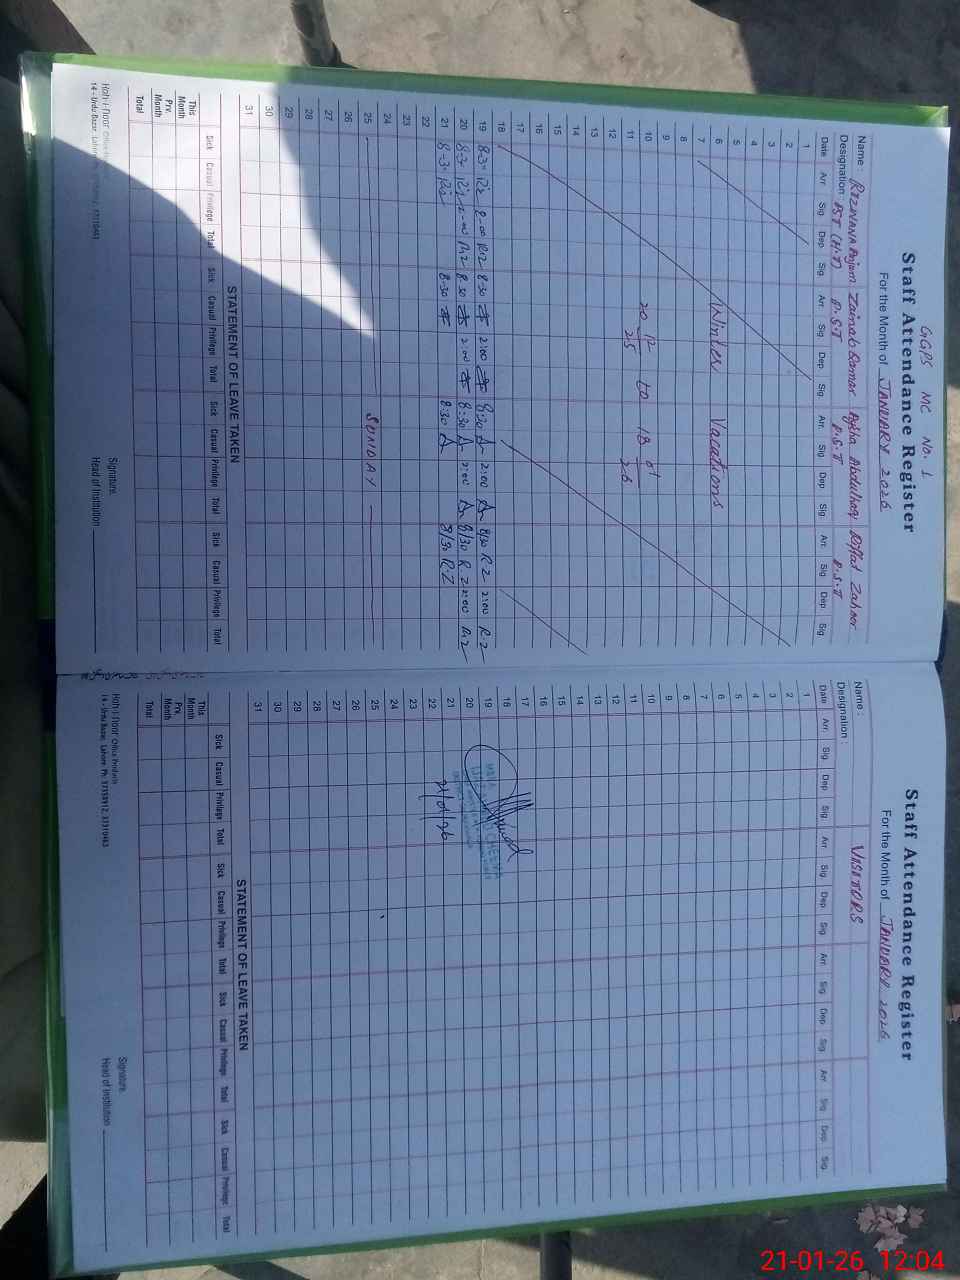 GGPS MC No. 1
Staff Attendance Register
For the Month of JANUARY 2026
Name : REZWANA Anjum Zainab Qamar Aysha Abdulhaq Riffat Zahoor
Designation PST (H.T) P.S.T P.S.T P.S.T
Date Arr. Sig. Dep. Sig. Arr. Sig. Dep. Sig. Arr. Sig. Dep. Sig. Arr. Sig. Dep. Sig.
1
2
3
4
5
6
7 Winter Vacations
8
9
10
11 20 12/25 to 18 01/26
12
13
14
15
16
17
18
19 8:30 2:00 8:30 2:00 8:30 2:00 8/30 R.Z 2:00 R.Z
20 8:30 2:00 8:30 2:00 8:30 2:00 8/30 R.Z 2:00 R.Z
21 8:30 8:30 8:30 8/30 R.Z
22
23
24
25 SUNDAY
26
27
28
29
30
31
STATEMENT OF LEAVE TAKEN
Sick Casual Privilege Total Sick Casual Privilege Total Sick Casual Privilege Total Sick Casual Privilege Total
This Month
Prv. Month
Total
Signature.
Head of Institution
14 - Urdu Bazar, Lahore
Staff Attendance Register
For the Month of JANUARY 2026
Name : VISITORS
Designation :
Date Arr. Sig. Dep. Sig. Arr. Sig. Dep. Sig. Arr. Sig. Dep. Sig. Arr. Sig. Dep. Sig.
1
2
3
4
5
6
7
8
9
10
11
12
13
14
15
16
17
18
19
20
21 21/01/26
22
23
24
25
26
27
28
29
30
31
STATEMENT OF LEAVE TAKEN
Sick Casual Privilege Total Sick Casual Privilege Total Sick Casual Privilege Total Sick Casual Privilege Total
This Month
Prv. Month
Total
Signature.
Head of Institution
Office Products
14 - Urdu Bazar, Lahore.
21-01-26 12:04